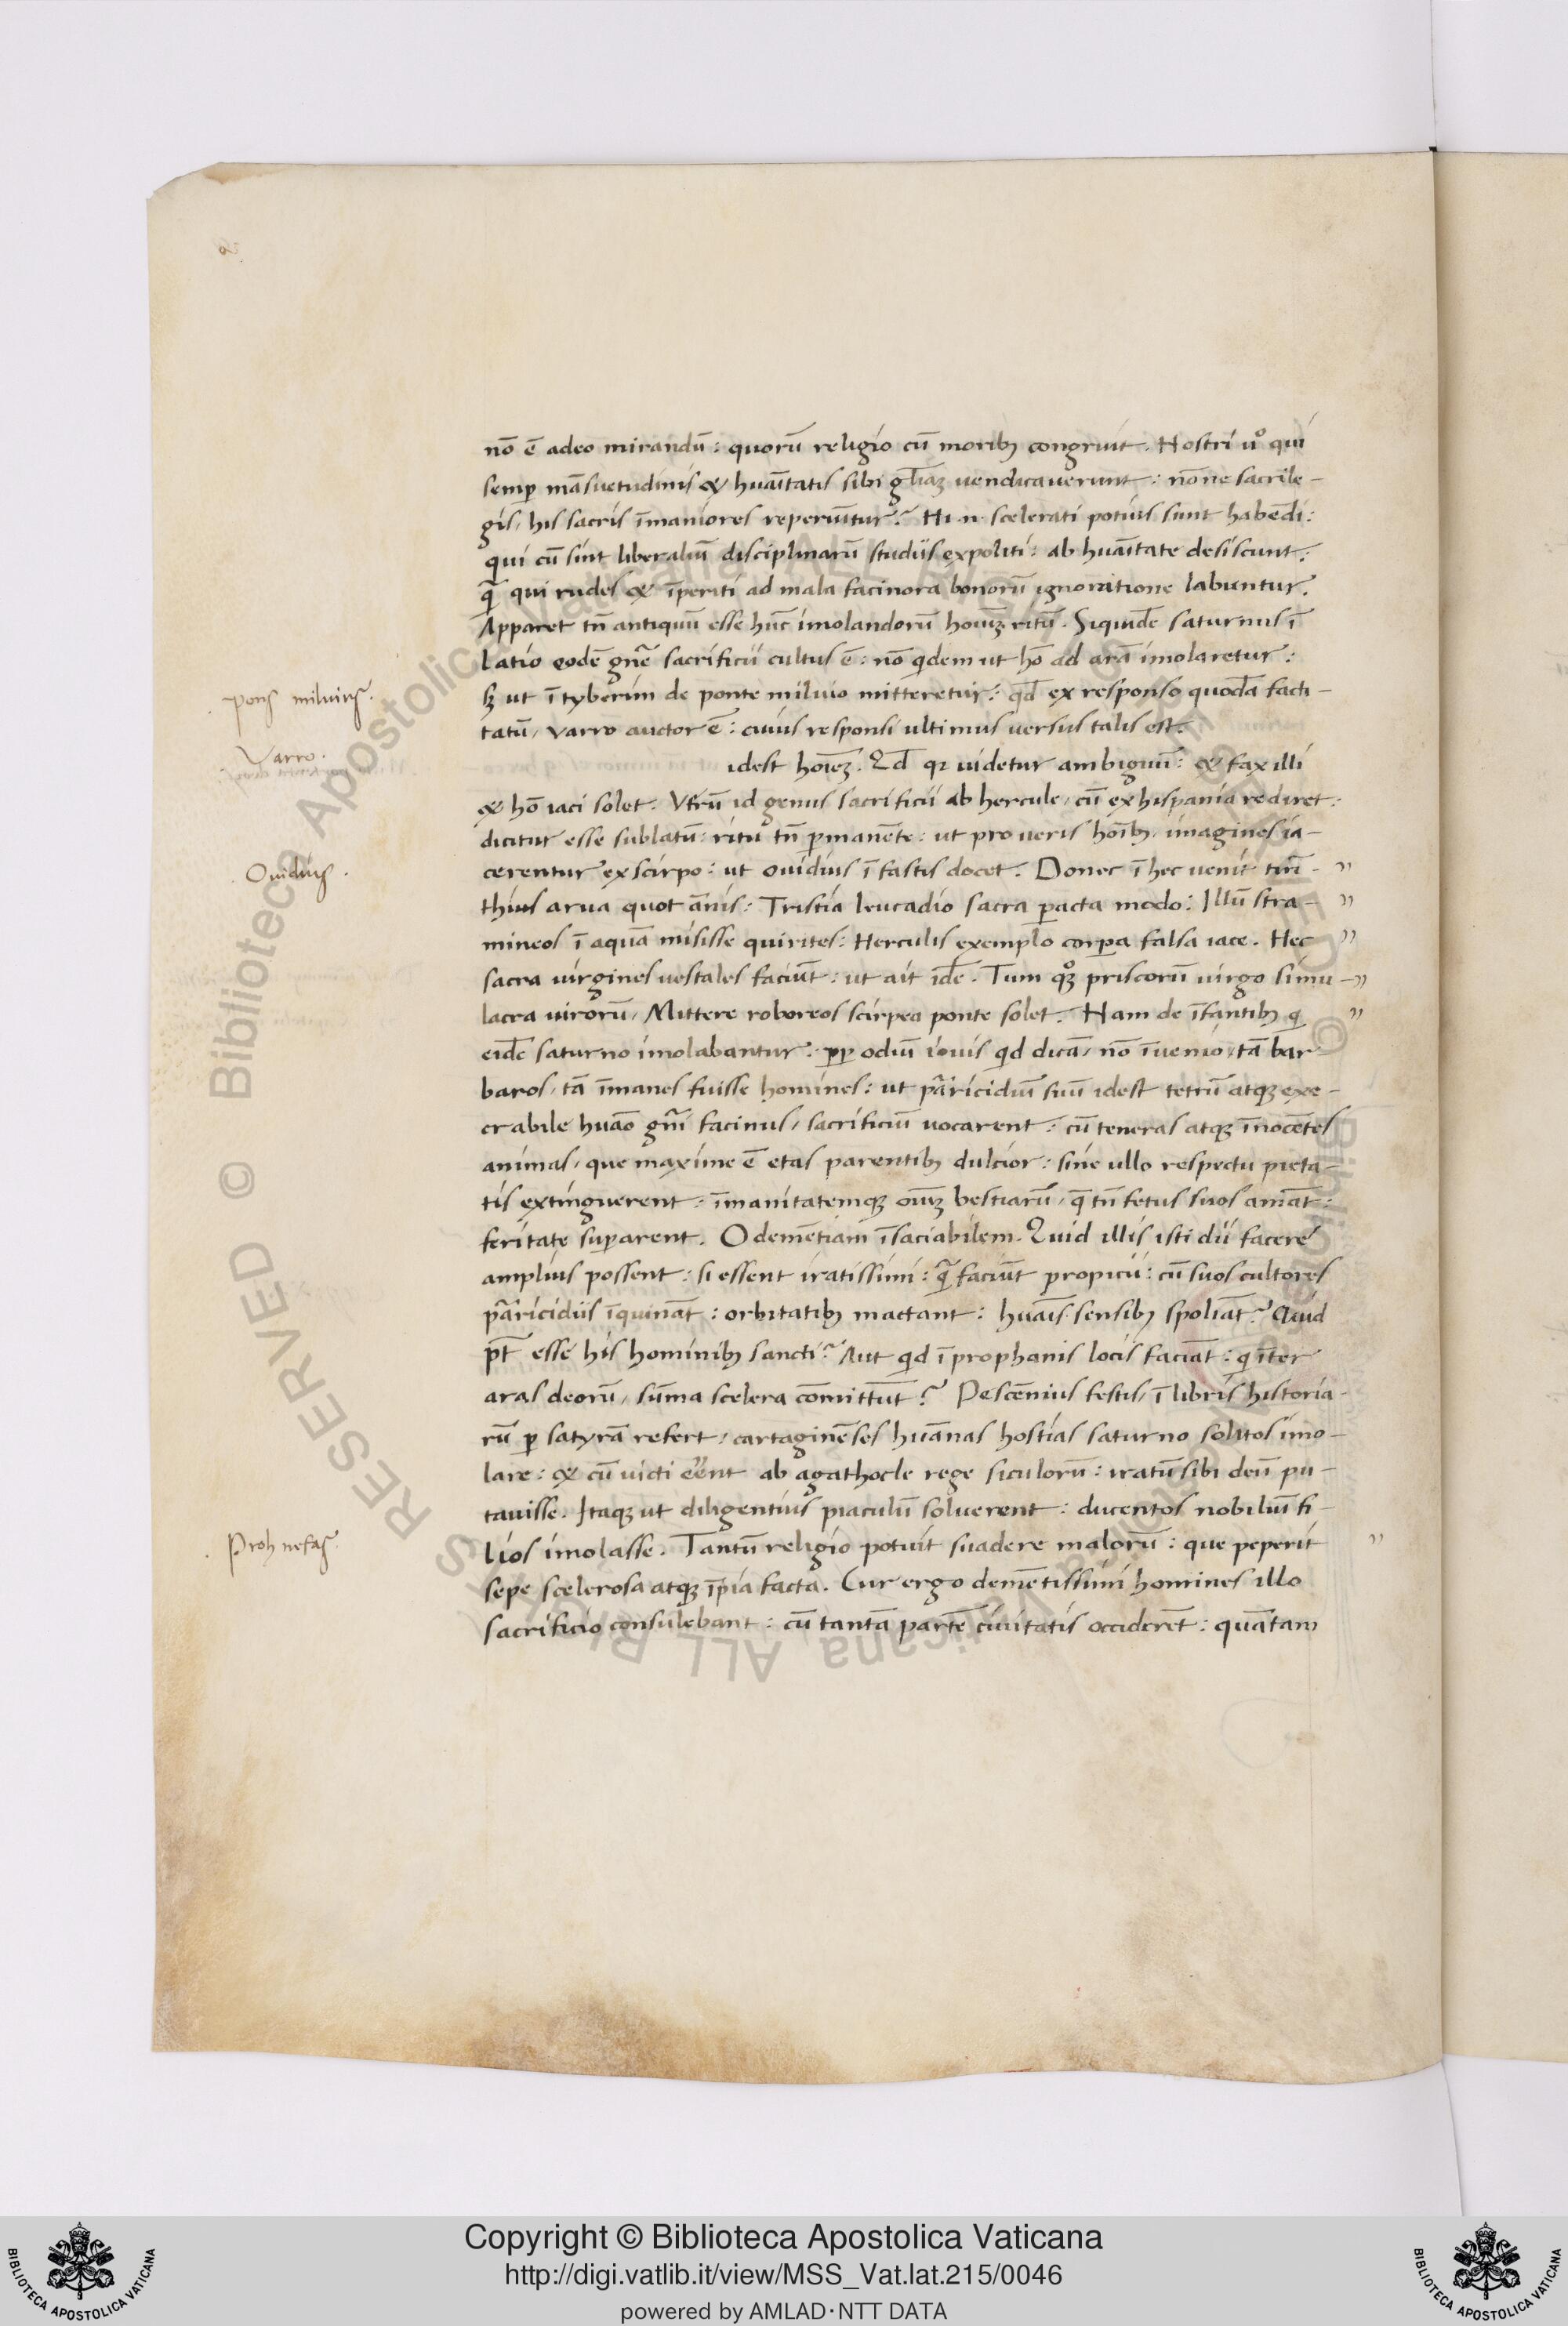 nō ē adeo mirandū: quorū religio cū moribȝ congruit. Nostri u͛o qui
semp̄ māsuetudinis & huāitatis sibi gl̄iaȝ uendicauerunt: nōne sacrile-
gis, his sacris īmaniores reperiūtur? Hi .n. scelerati potius sunt habēdi:
qui cū sint liberaliū disciplinarū studiis expoliti: ab huāitate desiscunt:
q̄ qui rudes & īperiti ad mala facinora bonorū ignoratione labuntur.
Apparet tn̄ antiquū esse hūc imolandorū hoiuȝ ritū. Siquidē saturnus ī
latio eodē gn̄e sacrificii cultus ē: nō qidem ut hō ad arā imolaretur:
sȝ ut ī tyberim de ponte miluio mitteretur: qd̄ ex responso quodā facti-
tatū, varro auctor ē: cuius responsi ultimus versus talis est.
idest hoīeȝ. Qd̄ qꝛ uidetur ambiguū: & fax illi
& hō iaci solet. Vtrū id genus sacrificii ab hercule, cū ex hispania rediret:
dicitur esse sublatū: ritu tn̄ ꝑmanēte: ut pro ueris hoībȝ, imagines ia-
cerentur ex scirpo: ut ouidius ī fastis docet. Donec ī hec uenit tirī- "
thius arua quot ānis: Tristia leucadio sacra ꝑacta modo: Illū stra- "
mineos ī aquā misisse quirites: Herculis exemplo corꝑa falsa iace. Hec "
sacra uirgines uestales faciūt: ut ait idē. Tum qȝ͛ priscorū uirgo simu- "
lacra uirorū, Mittere roboreos scirpea ponte solet. Nam de īfantibȝ q "
eidē saturno imolabantur: ꝑꝑ odiū iouis qid dicā, nō īuenio, tā bar-
baros, tā īmanes fuisse homines: ut pāricidiū suū idest tetrū atqȝ exe-
crabile huāo gn̄i facinus, sacrificiū uocarent: cū teneras atqȝ īnocētes
animas, que maxime ē etas parentibȝ dulcior: sine ullo respectu pieta-
tis extinguerent: īmanitatemqȝ oīuȝ bestiarū, q̄ tn̄ fetus suos amāt:
feritate suꝑarent. O demētiam īsaciabilem. Quid illis isti dii facere
amplius possent: si essent iratissimi: q̄ faciūt propicii: cū suos cultores
pāricidiis īquināt: orbitatibȝ mactant: huāis sensibȝ spoliāt? Quid
pt̄ esse his hominibȝ sancti? Aut qid ī prophanis locis faciāt: q īter
aras deorū, sūma scelera cōmittūt? Pescēnius festis, ī libris historia-
rū ꝑ satyrā refert, cartaginēses huānas hostias saturno solitos imo-
lare: & cū uicti eent ab agathocle rege siculorū: iratū sibi deū pu-
tauisse. Itaqȝ ut diligentius piaculū soluerent: ducentos nobiliū fi-
lios imolasse. Tantū religio potuit suadere malorū: que peperit "
sepe scelerosa atqȝ īpia facta. Cur ergo demētissimi homines illo
sacrificio consulebant: cū tantā partē ciuitatis occiderēt: quātam
. pons miluius.
Varro.
. Ouidius .
. Proh nefas.
© Biblioteca Apostolica Vaticana ALL RIGHTS RESERVED
Copyright © Biblioteca Apostolica Vaticana
http://digi.vatlib.it/view/MSS_Vat.lat.215/0046
powered by AMLAD·NTT DATA
BIBLIOTECA APOSTOLICA VATICANA
BIBLIOTECA APOSTOLICA VATICANA